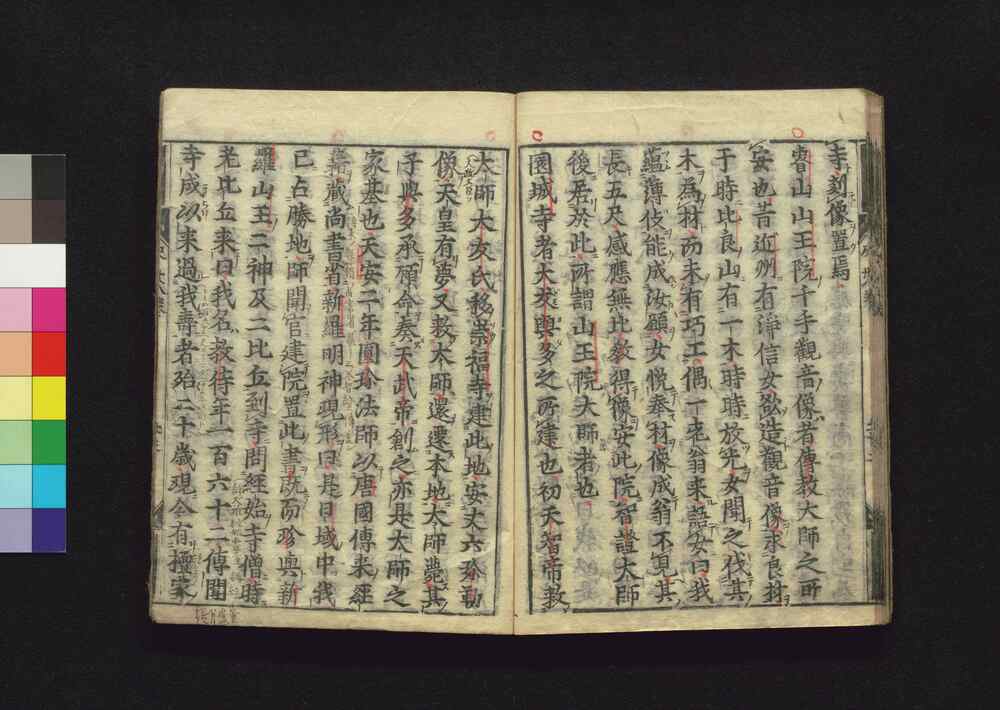 寺刻像置焉
睿山山王院千手觀音像者傳教大師之所
安也昔近州有淨信女欲造觀音像求良材
于時比良山有一木時時放光女聞之伐其
木為材而未有巧工偶一老翁来語女曰我
薀薄伎能成汝願女悅奉材像成翁不見其
長五尺感應無比教得像安此院智證大師
後居於此所謂山王院大師者也
園城寺者大友與多之所建也初天智帝敕
大師大友氏移崇福寺建此地安丈六弥勒
像天皇有夢又敕太師還遷本地太師薨其
子與多承願命奏天武帝創之亦是大師之
家基也天安二年圓珍法師以唐國傳来經
籍藏尚書省新羅明神現形曰是日域中我
已占勝地師聞官建院置此書既而珍與新
羅山王二神及二比丘到寺問經始寺僧時
老比丘来曰我名教待年一百六十二傳聞
寺成以来過我壽者殆二十歲現今有檀家